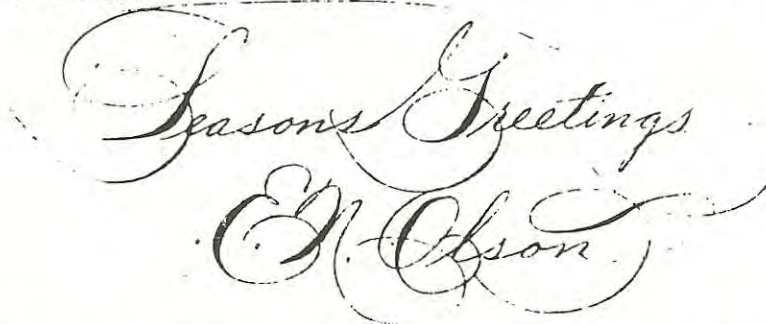 Seasons Greetings
E.N. Olson